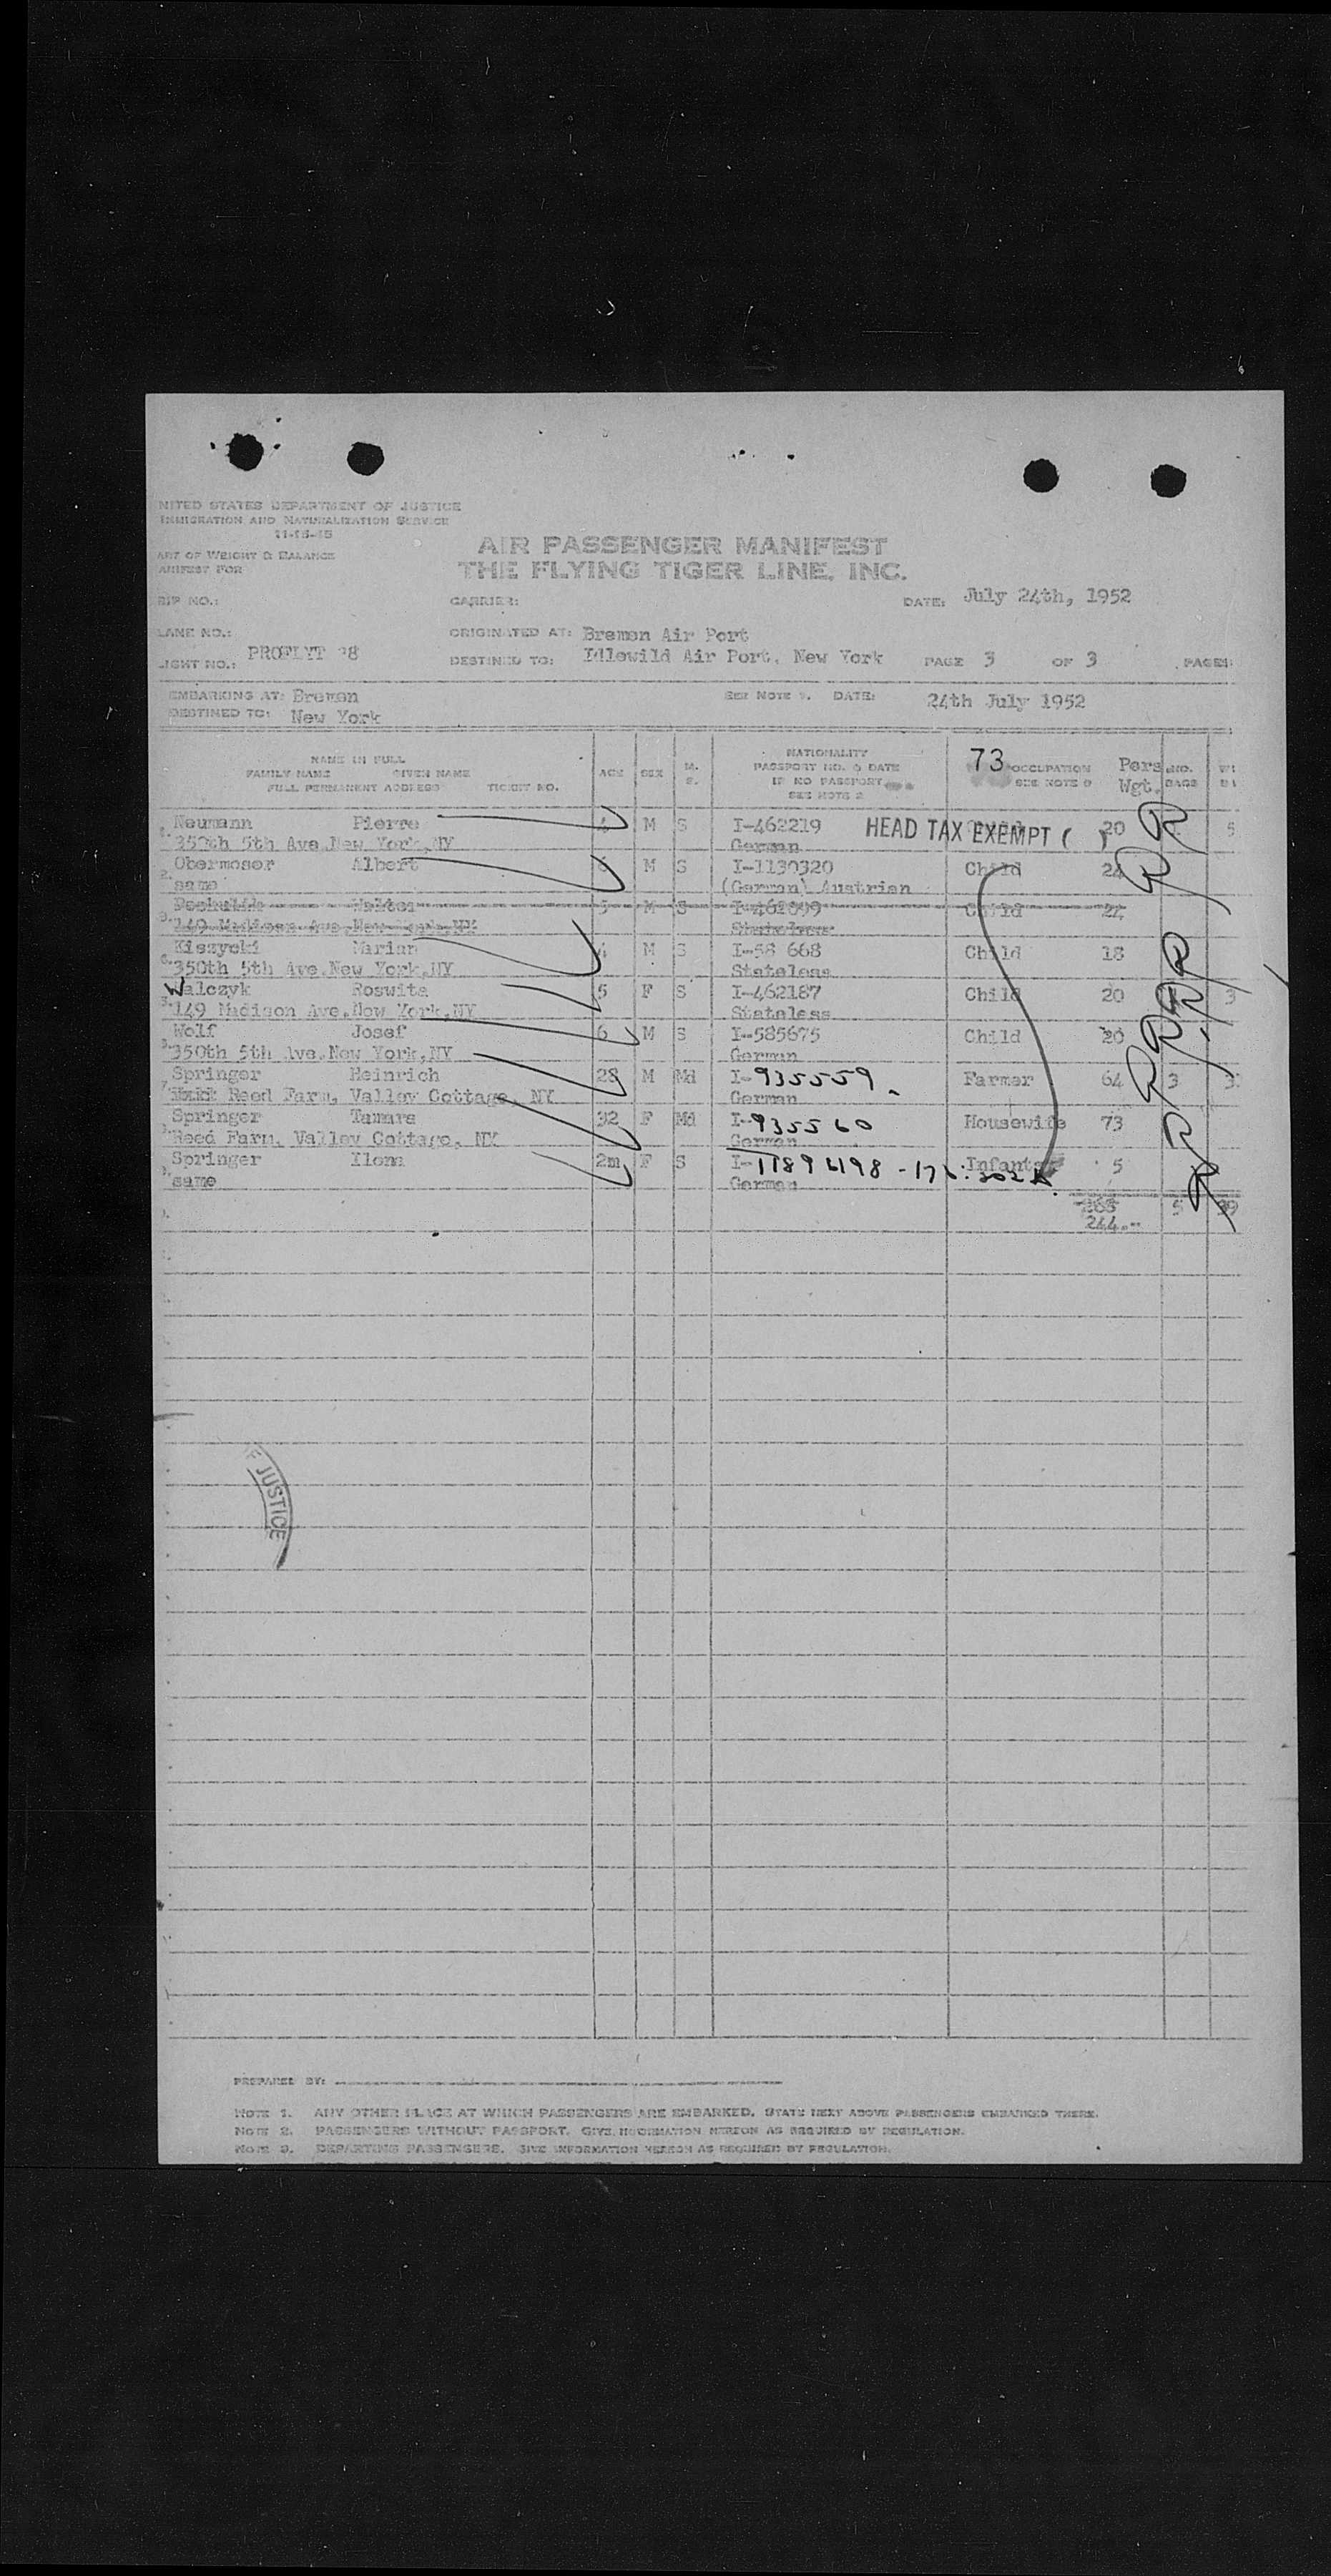 NITED STATES DEPARTMENT OF JUSTICE
IMMIGRATION AND NATURALIZATION SERVICE
11-15-45
ART OF WEIGHT & BALANCE
ANIFEST FOR
AIR PASSENGER MANIFEST
THE FLYING TIGER LINE, INC.
RIP NO.: CARRIER: DATE: July 24th, 1952
LANE NO.: ORIGINATED AT: Bremen Air Port
LIGHT NO.: PROFLYT DESTINED TO: Idlewild Air Port, New York PAGE 3 OF 3 PAGES
EMBARKING AT: Bremen SEE NOTE 1. DATE: 24th July 1952
DESTINED TO: New York
NAME IN FULL
FAMILY NAME GIVEN NAME
FULL PERMANENT ADDRESS TICKET NO.
AGE SEX M. S.
NATIONALITY
PASSPORT NO. & DATE
IF NO PASSPORT
SEE NOTE 2
73 OCCUPATION
SEE NOTE 3
Pers Wgt. NO. BAGS
Neumann Pierre 4 M S I-462219 HEAD TAX EXEMPT ( ) 20 5
350th 5th Ave. New York, NY German
Obermoser Albert 6 M S I-1130320 Child 24
same (German) Austrian
Walter 5 M S Child 24
149 Madison Ave, New York, NY Stateless
Kiszycki Marian 4 M S I-58 668 Child 18
350th 5th Ave. New York, NY Stateless
Walczyk Roswita 5 F S I-462187 Child 20 3
149 Madison Ave. New York, NY Stateless
Wolf Josef 6 M S I-585675 Child 20
350th 5th Ave. New York, NY German
Springer Heinrich 28 M Md I-935559 Farmer 64 3
Reed Farm, Valley Cottage, NY German
Springer Tamara 32 F Md I-935560 Housewife 73
Reed Farm, Valley Cottage, NY German
Springer Ilona 2m F S Infant 5
same German
268 5 39
244.--
F JUSTICE
PREPARED BY:
NOTE 1. ANY OTHER PLACE AT WHICH PASSENGERS ARE EMBARKED. STATE NEXT ABOVE PASSENGERS EMBARKED THERE.
NOTE 2. PASSENGERS WITHOUT PASSPORT. GIVE INFORMATION HEREON AS REQUIRED BY REGULATION.
NOTE 3. DEPARTING PASSENGERS. GIVE INFORMATION HEREON AS REQUIRED BY REGULATION.